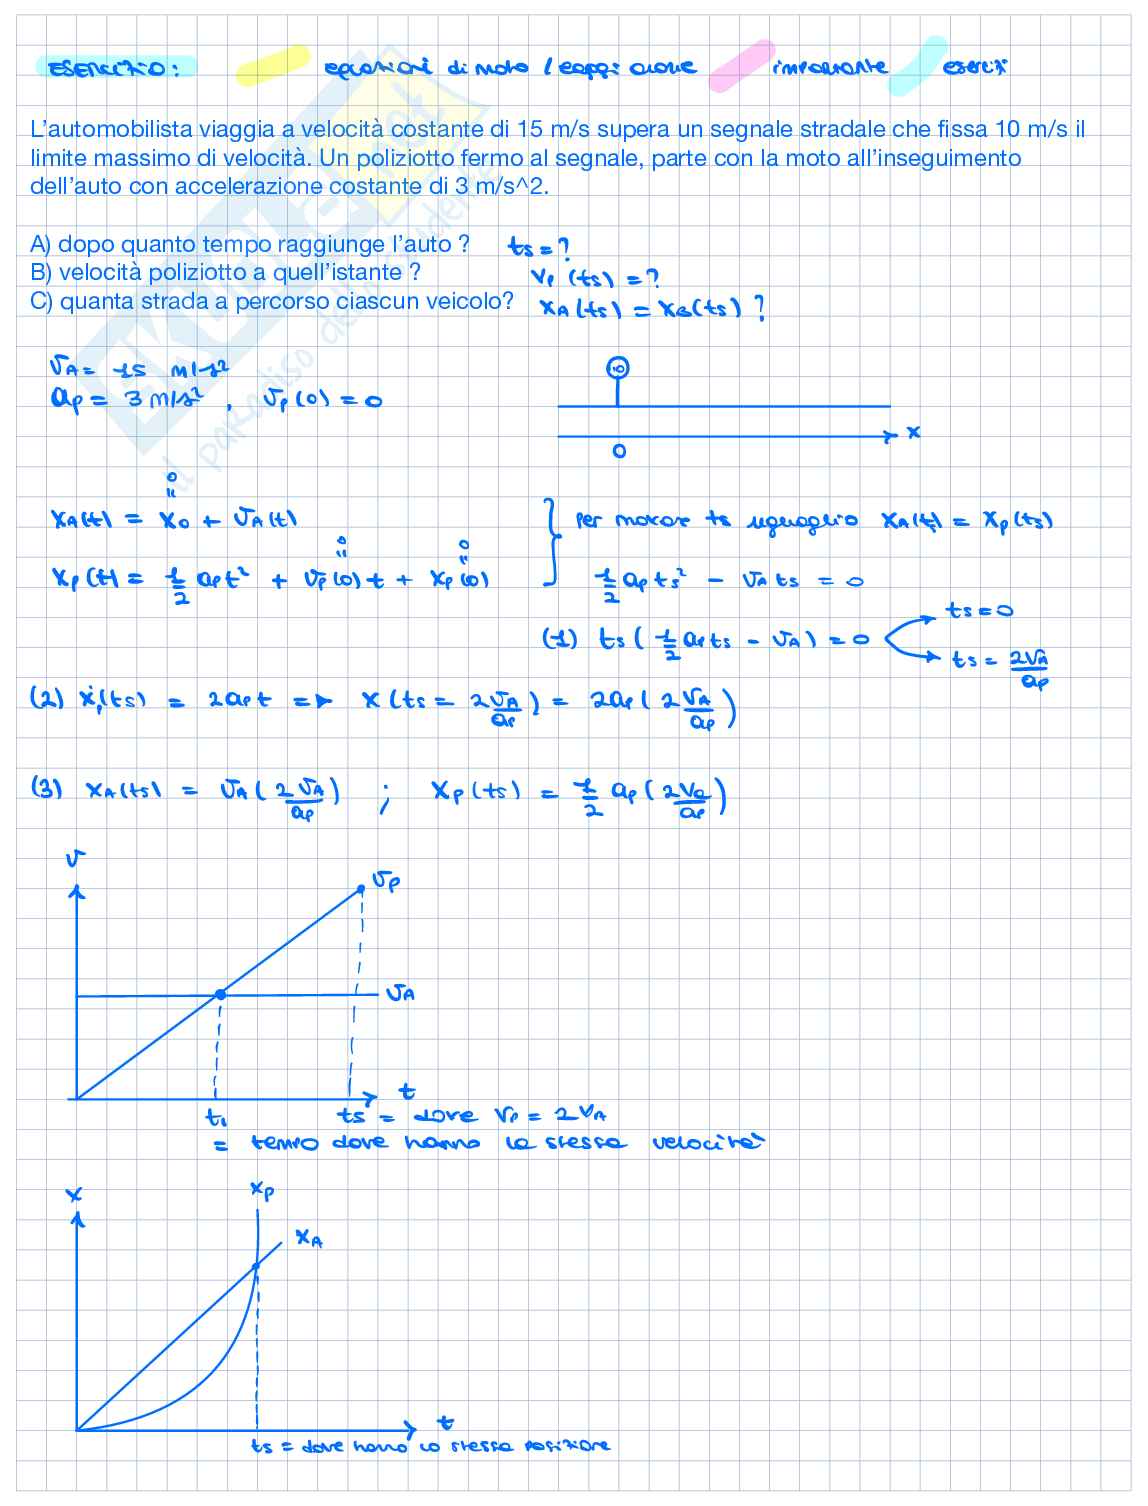 ESERCIZIO: equazioni di moto / leggi orarie importante esercizi
L'automobilista viaggia a velocità costante di 15 m/s supera un segnale stradale che fissa 10 m/s il
limite massimo di velocità. Un poliziotto fermo al segnale, parte con la moto all'inseguimento
dell'auto con accelerazione costante di 3 m/s^2.
A) dopo quanto tempo raggiunge l'auto ? ts = ?
B) velocità poliziotto a quell'istante ? vp (ts) = ?
C) quanta strada a percorso ciascun veicolo? xA(ts) = xB(ts) ?
vA = 15 m/s²
ap = 3 m/s² , vp(0) = 0
10
x
0
0
"
xA(t) = x0 + vA(t) per trovare ts uguaglio xA(t) = xp(ts)
0 0
" "
xp(t) = 1/2 ap t² + vp(0) t + xp(0) 1/2 ap ts² - vA ts = 0
ts = 0
(1) ts ( 1/2 ap ts - vA ) = 0
ts = 2vA/ap
(2) ẋp(ts) = 2apt => x (ts = 2vA/ap) = 2ap ( 2 vA/ap )
(3) xA(ts) = vA ( 2vA/ap ) ; xp(ts) = 1/2 ap ( 2va/ap )
v
vp
vA
t
t1 ts = dove vp = 2vA
= tempo dove hanno la stessa velocità
x
xp
xA
t
ts = dove hanno la stessa posizione
SKUOLA.net
il paradiso dello studente